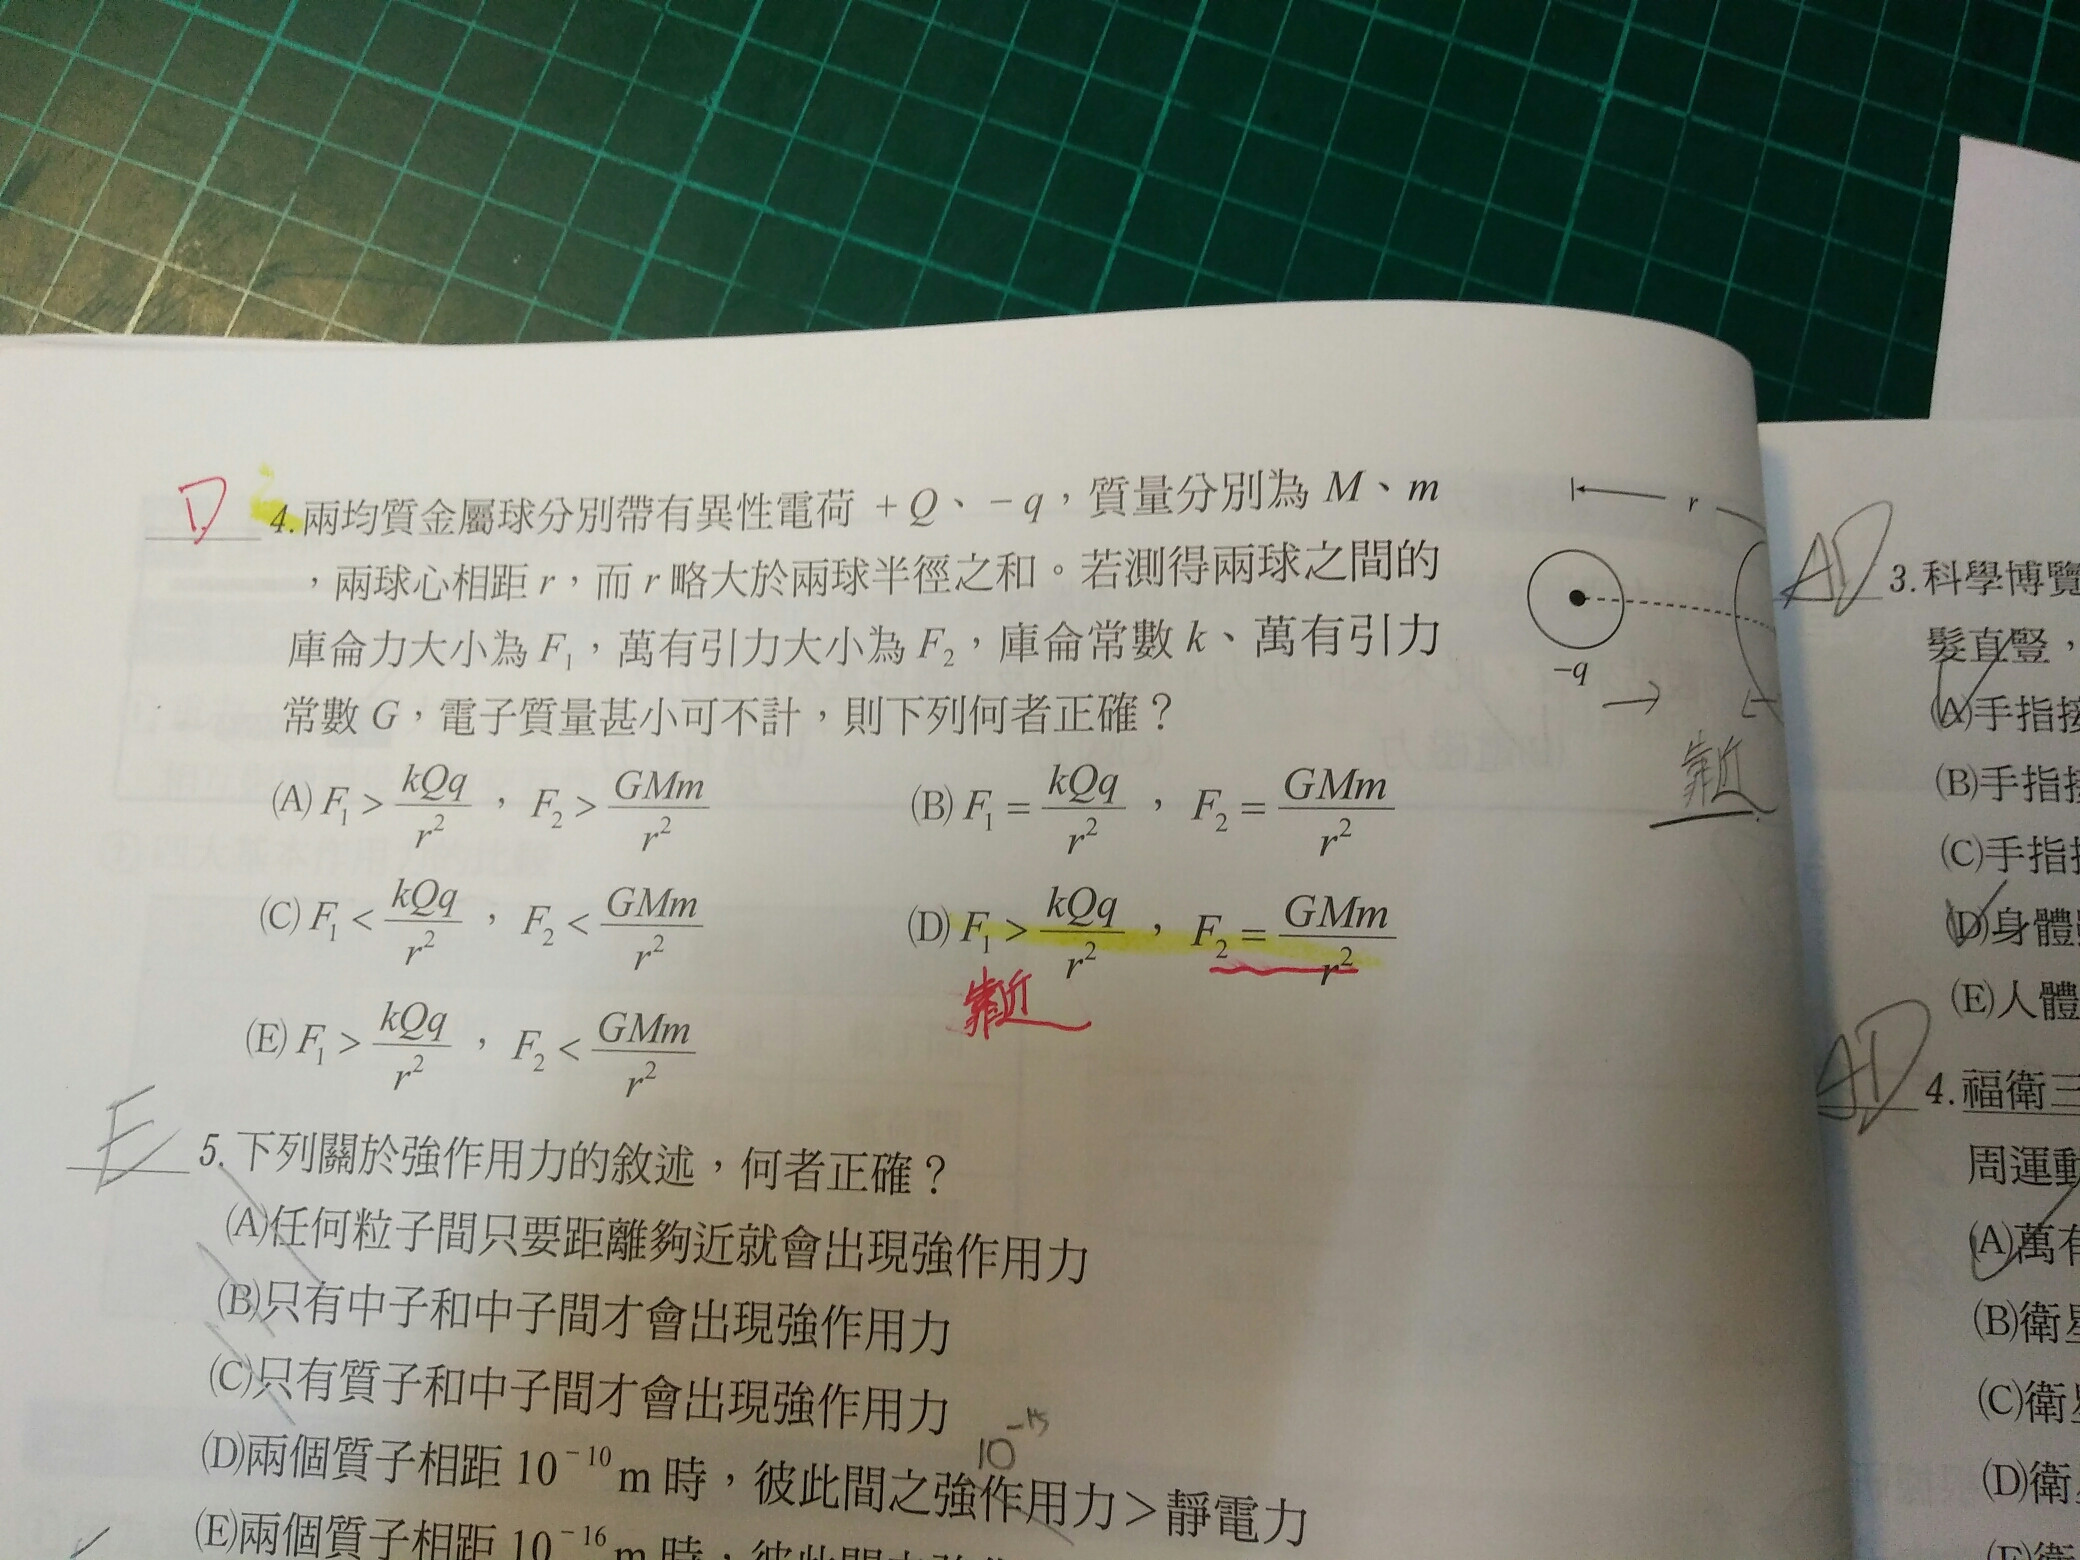 D 4.兩均質金屬球分別帶有異性電荷 +Q、-q，質量分別為 M、m
，兩球心相距 r，而 r 略大於兩球半徑之和。若測得兩球之間的
庫侖力大小為 F₁，萬有引力大小為 F₂，庫侖常數 k、萬有引力
常數 G，電子質量甚小可不計，則下列何者正確？
(A) F₁ > kQq/r²，F₂ > GMm/r² (B) F₁ = kQq/r²，F₂ = GMm/r²
(C) F₁ < kQq/r²，F₂ < GMm/r² (D) F₁ > kQq/r²，F₂ = GMm/r²
靠近
(E) F₁ > kQq/r²，F₂ < GMm/r²
r
-q
靠近
E 5.下列關於強作用力的敘述，何者正確？
(A)任何粒子間只要距離夠近就會出現強作用力
(B)只有中子和中子間才會出現強作用力
(C)只有質子和中子間才會出現強作用力
10⁻¹⁵
(D)兩個質子相距 10⁻¹⁰ m 時，彼此間之強作用力＞靜電力
(E)兩個質子相距 10⁻¹⁶ m 時，彼此間
AD 3.科學博覽
髮直豎，
(A)手指接
(B)手指
(C)手指
(D)身體
(E)人體
AD 4.福衛三
周運動
(A)萬有
(B)衛星
(C)衛
(D)衛
(E)衛